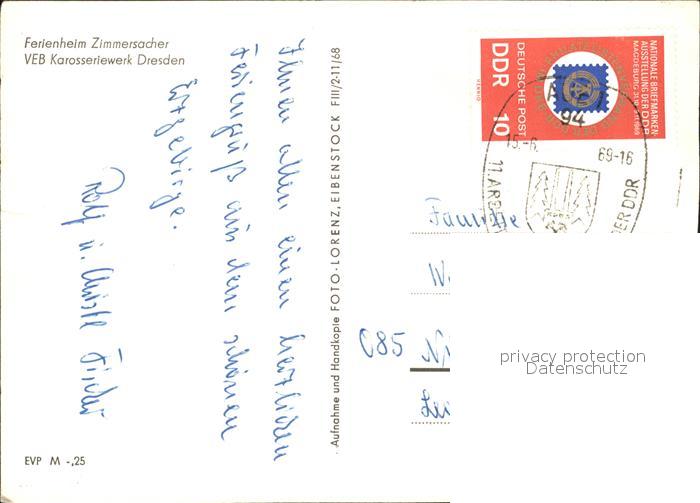 Ferienheim Zimmersacher
VEB Karosseriewerk Dresden
Ihnen allen einen herzlichen
Feriengruß aus dem schönen
Erzgebirge.
Rolf u. Christl Fischer
Aufnahme und Handkopie FOTO-LORENZ, EIBENSTOCK FIII/2-11/68
NATIONALE BRIEFMARKEN-
AUSSTELLUNG DER DDR
DEUTSCHE POST
DDR 10
94
15.-6. 69-16
11. ARB
DER DDR
Familie
085
privacy protection
Datenschutz
EVP M -,25